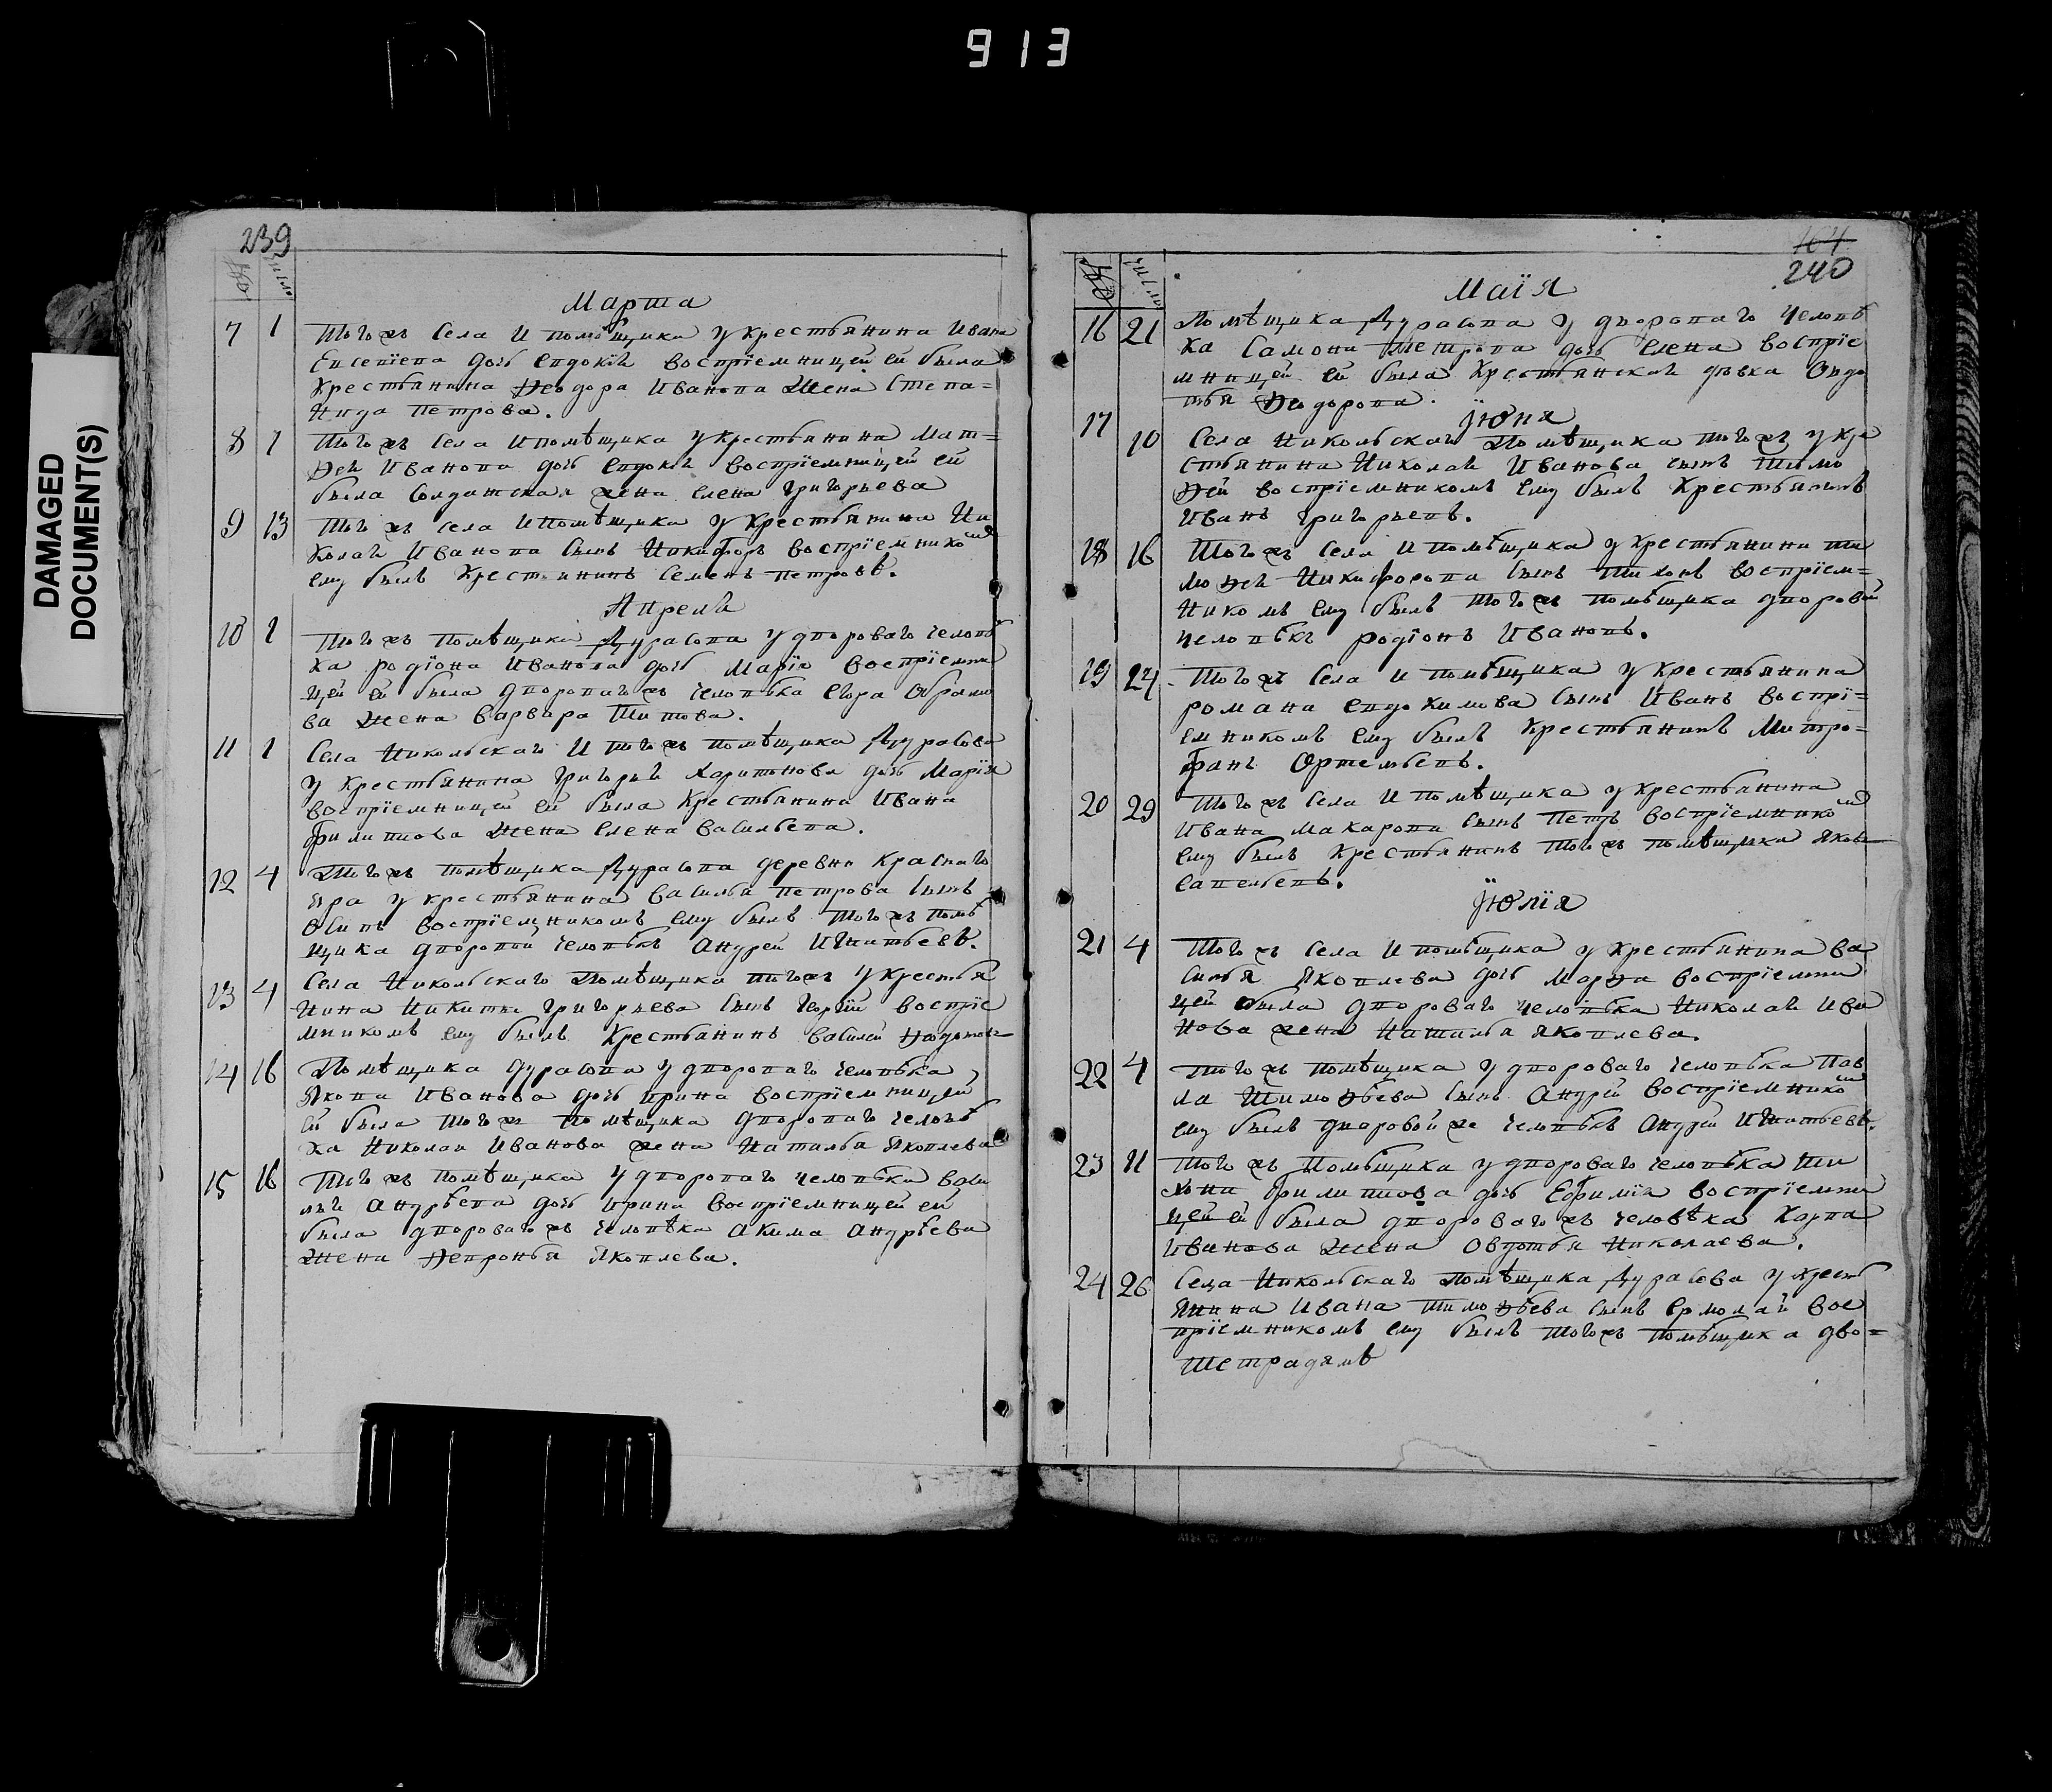 913
DAMAGED
DOCUMENT(S)
239
Марта
7 1 Тогожъ Села И помѣщика у крестьянина Ивана
Евсевїева дочь Евдокїя восприемницей ей была
Крестьянина Ѳеодора Иванова Жена Степа=
нида Петрова.
8 1 Тогожъ Села И помѣщика у крестьянина Мат=
ѳея Иванова дочь Евдокїя воспрїемницей ей
была солдатская жена Елена Григорьева
9 13 Тогожъ села И помѣщика у крестьянина Ни
колая Иванова сынъ Никифоръ воспрїемникомъ
ему былъ Крестьянинъ Семенъ Петровъ.
Апреля
10 1 Тогожъ Помѣщика Дурасова у двороваго человѣ
ка родїона Иванова дочь Марїя воспрїемни
цей ей была двороваго жъ человѣка Егора Абрамо
ва Жена Варвара Титова.
11 1 Села Никольскаго И тогожъ помѣщика Дурасова
у крестьянина Григорья Харитонова дочь Марїя
воспрїемницей ей была Крестьянина Ивана
Филиппова Жена Елена Васильева.
12 4 Тогожъ помѣщика Дурасова деревни Краснаго
Яра у крестьянина Василья Петрова сынъ
Осипъ воспрїемникомъ ему былъ Тогожъ помѣ
щика дворовой человѣкъ Андрей Игнатьевъ.
13 4 Села Никольскаго Помѣщика тогожъ у крестья
нина Никиты Григорьева сынъ Георгїй воспрїе
мникомъ ему былъ Крестьянинъ Василей
14 16 Помѣщика Дурасова у двороваго человѣка
Якова Иванова дочь Ирина воспрїемницей
ей была тогожъ помѣщика двороваго человѣ
ка Николая Иванова жена Наталья Яковлева
15 16 Тогожъ помѣщика у двороваго человѣка Васи
лья Андрѣева дочь Ирина воспрїемницей ей
была двороваго жъ человѣка Акима Андрѣева
Жена Ѳевронья Яковлева.
164
240
Маїя
16 21 Помѣщика Дурасова у двороваго человѣ
ка Самона Петрова дочь Елена воспрїе
мницей ей была Крестьянская дѣвка Овдо
тья Ѳеодорова.
Їюня
17 10 Села Никольскаго Помѣщика тогожъ у кре
стьянина Николая Иванова сынъ Тимо
ѳей воспрїемникомъ ему былъ Крестьянинъ
Иванъ Григорьевъ.
18 16 Тогожъ Села И помѣщика у крестьянина Ти
моѳея Никифорова сынъ Тихонъ воспрїем=
никомъ ему былъ тогожъ помѣщика дворовой
человѣкъ родїонъ Ивановъ.
19 24 Тогожъ Села И помѣщика у крестьянина
романа Евдокимова сынъ Иванъ воспрї=
емникомъ ему былъ Крестьянинъ Митро=
фанъ Ортемьевъ.
20 29 Тогожъ Села И помѣщика у крестьянина
Ивана Макарова сынъ Петръ воспрїемникомъ
ему былъ Крестьянинъ тогожъ помѣщика Яковъ
Савельевъ.
Їюлїя
21 4 Тогожъ Села И помѣщика у крестьянина Ва
силья Яковлева дочь Марѳа воспрїемни
цей была двороваго человѣка Николая Ива
нова жена Наталья Яковлева.
22 4 Тогожъ помѣщика у двороваго человѣка Пав
ла Тимоѳѣева сынъ Андрей воспрїемникомъ
ему былъ дворовой же человѣкъ Андрей Игнатьевъ.
23 11 Тогожъ Помѣщика у двороваго человѣка Ти
хона Филиппова дочь Ефимїя воспрїемни
цей ей была двороваго жъ человѣка Карпа
Иванова Жена Овдотья Николаева.
24 26 Села Никольскаго помѣщика Дурасова у крестъ
янина Ивана Тимоѳѣева сынъ Ермолай вос
прїемникомъ ему былъ тогожъ помѣщика дво=
Тетрадямъ